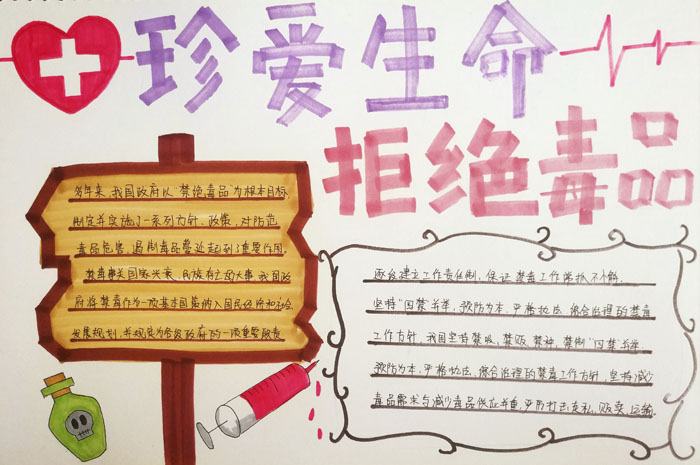 珍爱生命
拒绝毒品
多年来,我国政府以"禁绝毒品"为根本目标,
制定并实施了一系列方针、政策,对防范
毒品危害,遏制毒品蔓延起到了重要作用。
禁毒事关国家兴衰、民族存亡的大事,我国政
府将禁毒作为一项基本国策纳入国民经济和社会
发展规划,并规定为各级政府的一项重要职责
逐级建立工作责任制,保证禁毒工作常抓不懈。
坚持"四禁"并举、预防为本、严格执法、综合治理的禁毒
工作方针,我国坚持禁吸、禁贩、禁种、禁制"四禁"并举、
预防为本、严格执法、综合治理的禁毒工作方针,坚持减少
毒品需求与减少毒品供应并重,严厉打击走私、贩卖、运输